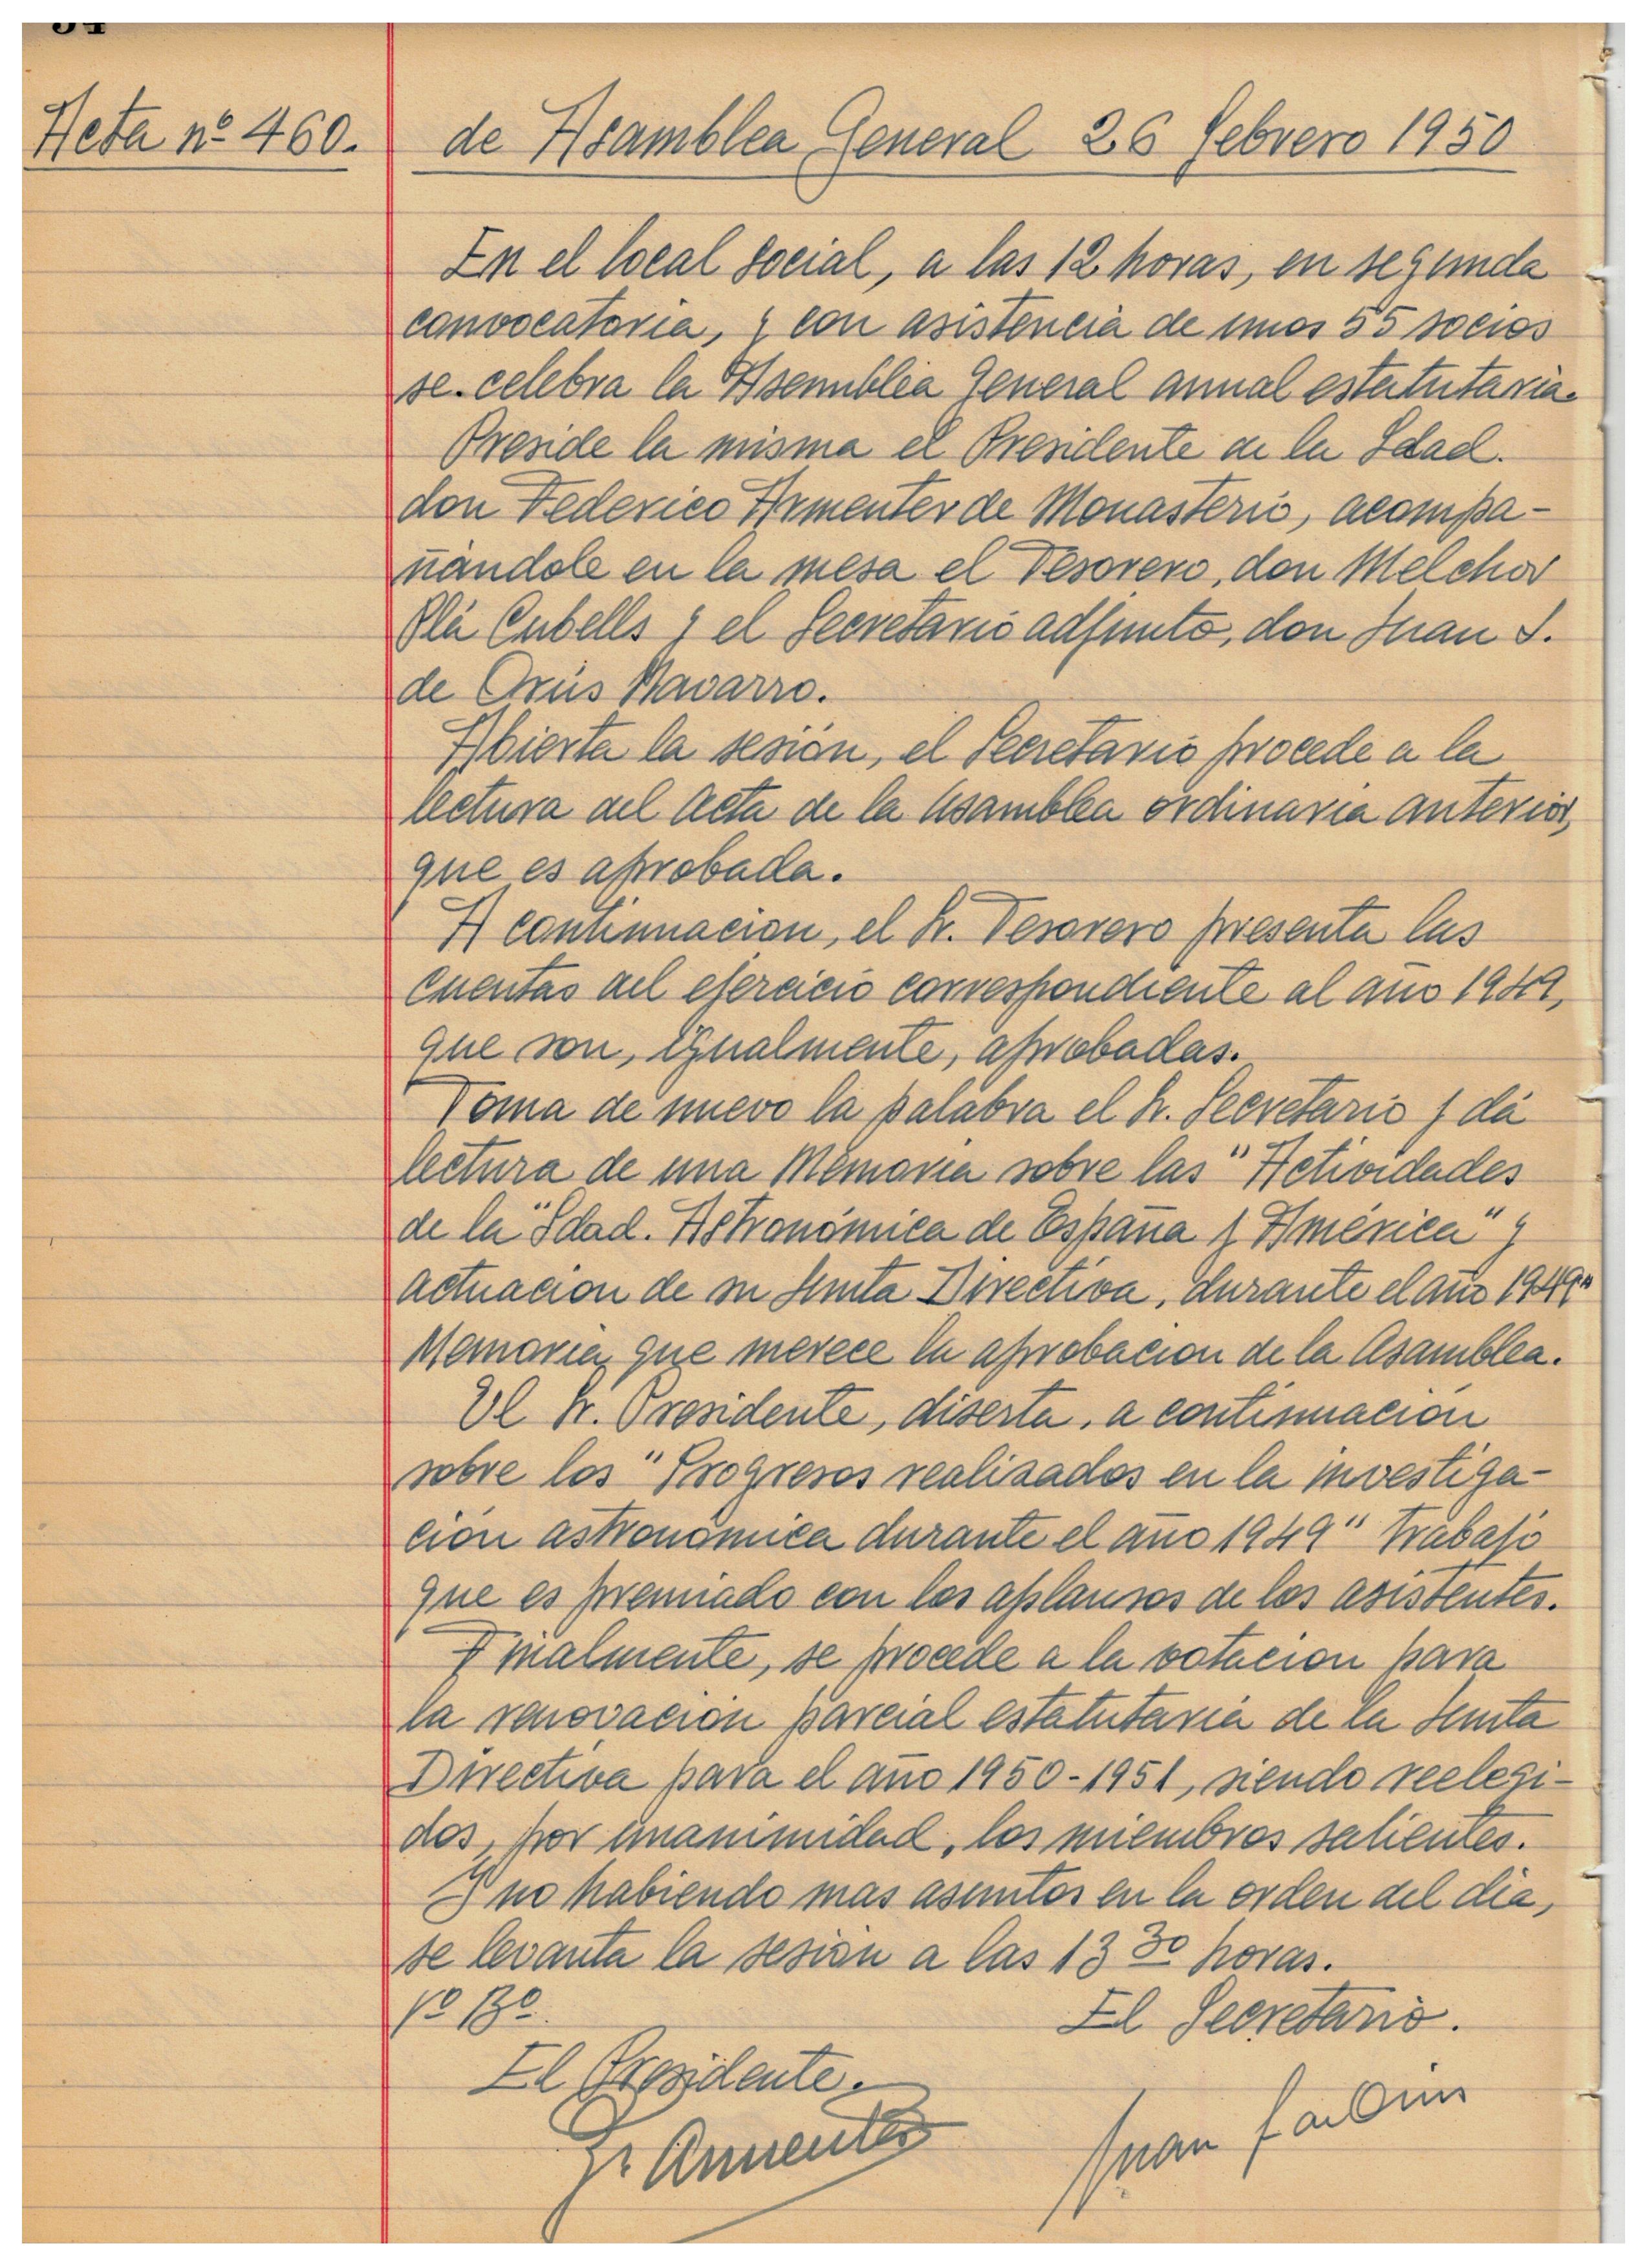 Acta nº 460. de Asamblea General 26 febrero 1950
En el local social, a las 12 horas, en segunda
convocatoria, y con asistencia de unos 55 socios
se celebra la Asemblea General anual estatutaria.
Preside la misma el Presidente de la Sdad.
don Federico Armenter de Monasterio, acompa-
ñándole en la mesa el Tesorero, don Melchor
Plá Cubells y el Secretario adjunto, don Juan S.
de Orús Navarro.
Abierta la sesión, el Secretario procede a la
lectura del acta de la Asamblea ordinaria anterior,
que es aprobada.
A continuación, el Sr. Tesorero presenta las
cuentas del ejercicio correspondiente al año 1949,
que son, igualmente, aprobadas.
Toma de nuevo la palabra el Sr. Secretario y dá
lectura de una Memoria sobre las "Actividades
de la "Sdad. Astronómica de España y América" y
actuación de su Junta Directiva, durante el año 1949"
Memoria, que merece la aprobación de la Asamblea.
El Sr. Presidente, diserta, a continuación
sobre los "Progresos realizados en la investiga-
ción astronómica durante el año 1949" trabajo
que es premiado con los aplausos de los asistentes.
Finalmente, se procede a la votación para
la renovación parcial estatutaria de la Junta
Directiva para el año 1950-1951, siendo reelegi-
dos, por unanimidad, los miembros salientes.
Y no habiendo mas asuntos en la orden del dia,
se levanta la sesión a las 13 30 horas.
Vº Bº. El Secretario.
El Presidente.
F. Armenter Juan S. de Orús